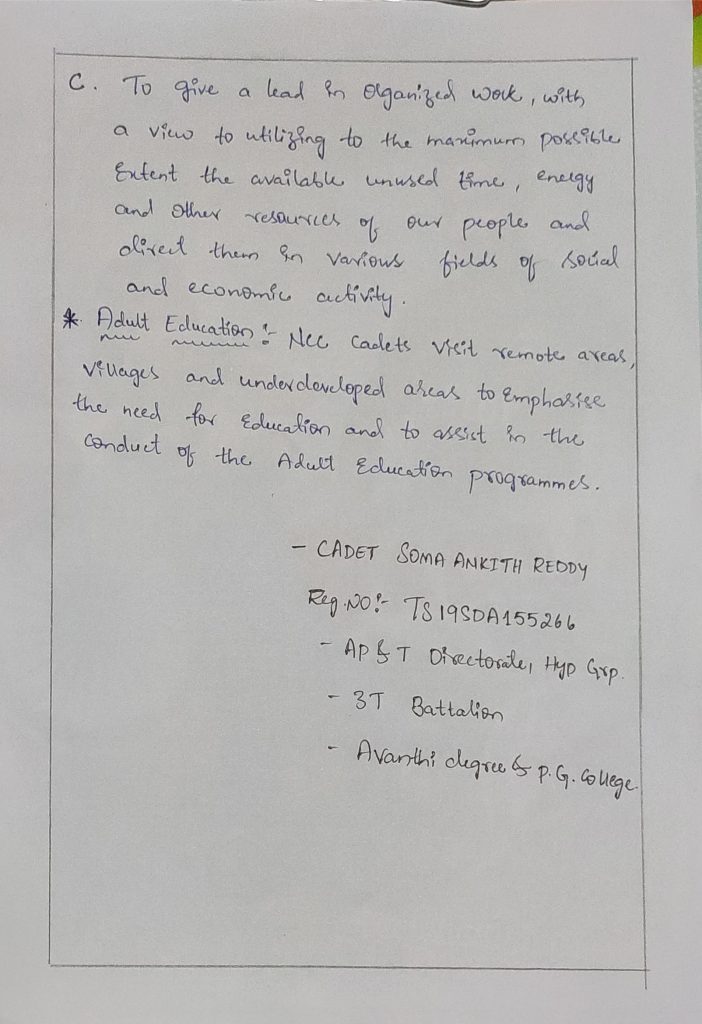 C. To give a lead in organized work, with
a view to utilizing to the maximum possible
Extent the available unused time, energy
and other resources of our people and
direct them in various fields of social
and economic activity.
* Adult Education :- Ncc cadets visit remote areas,
villages and underdeveloped areas to Emphasise
the need for Education and to assist in the
Conduct of the Adult Education programmes.
- CADET SOMA ANKITH REDDY
Reg.NO:- TS19SDA155266
- AP & T Directorate, Hyd Grp.
- 3T Battalion
- Avanthi degree & P.G. College.